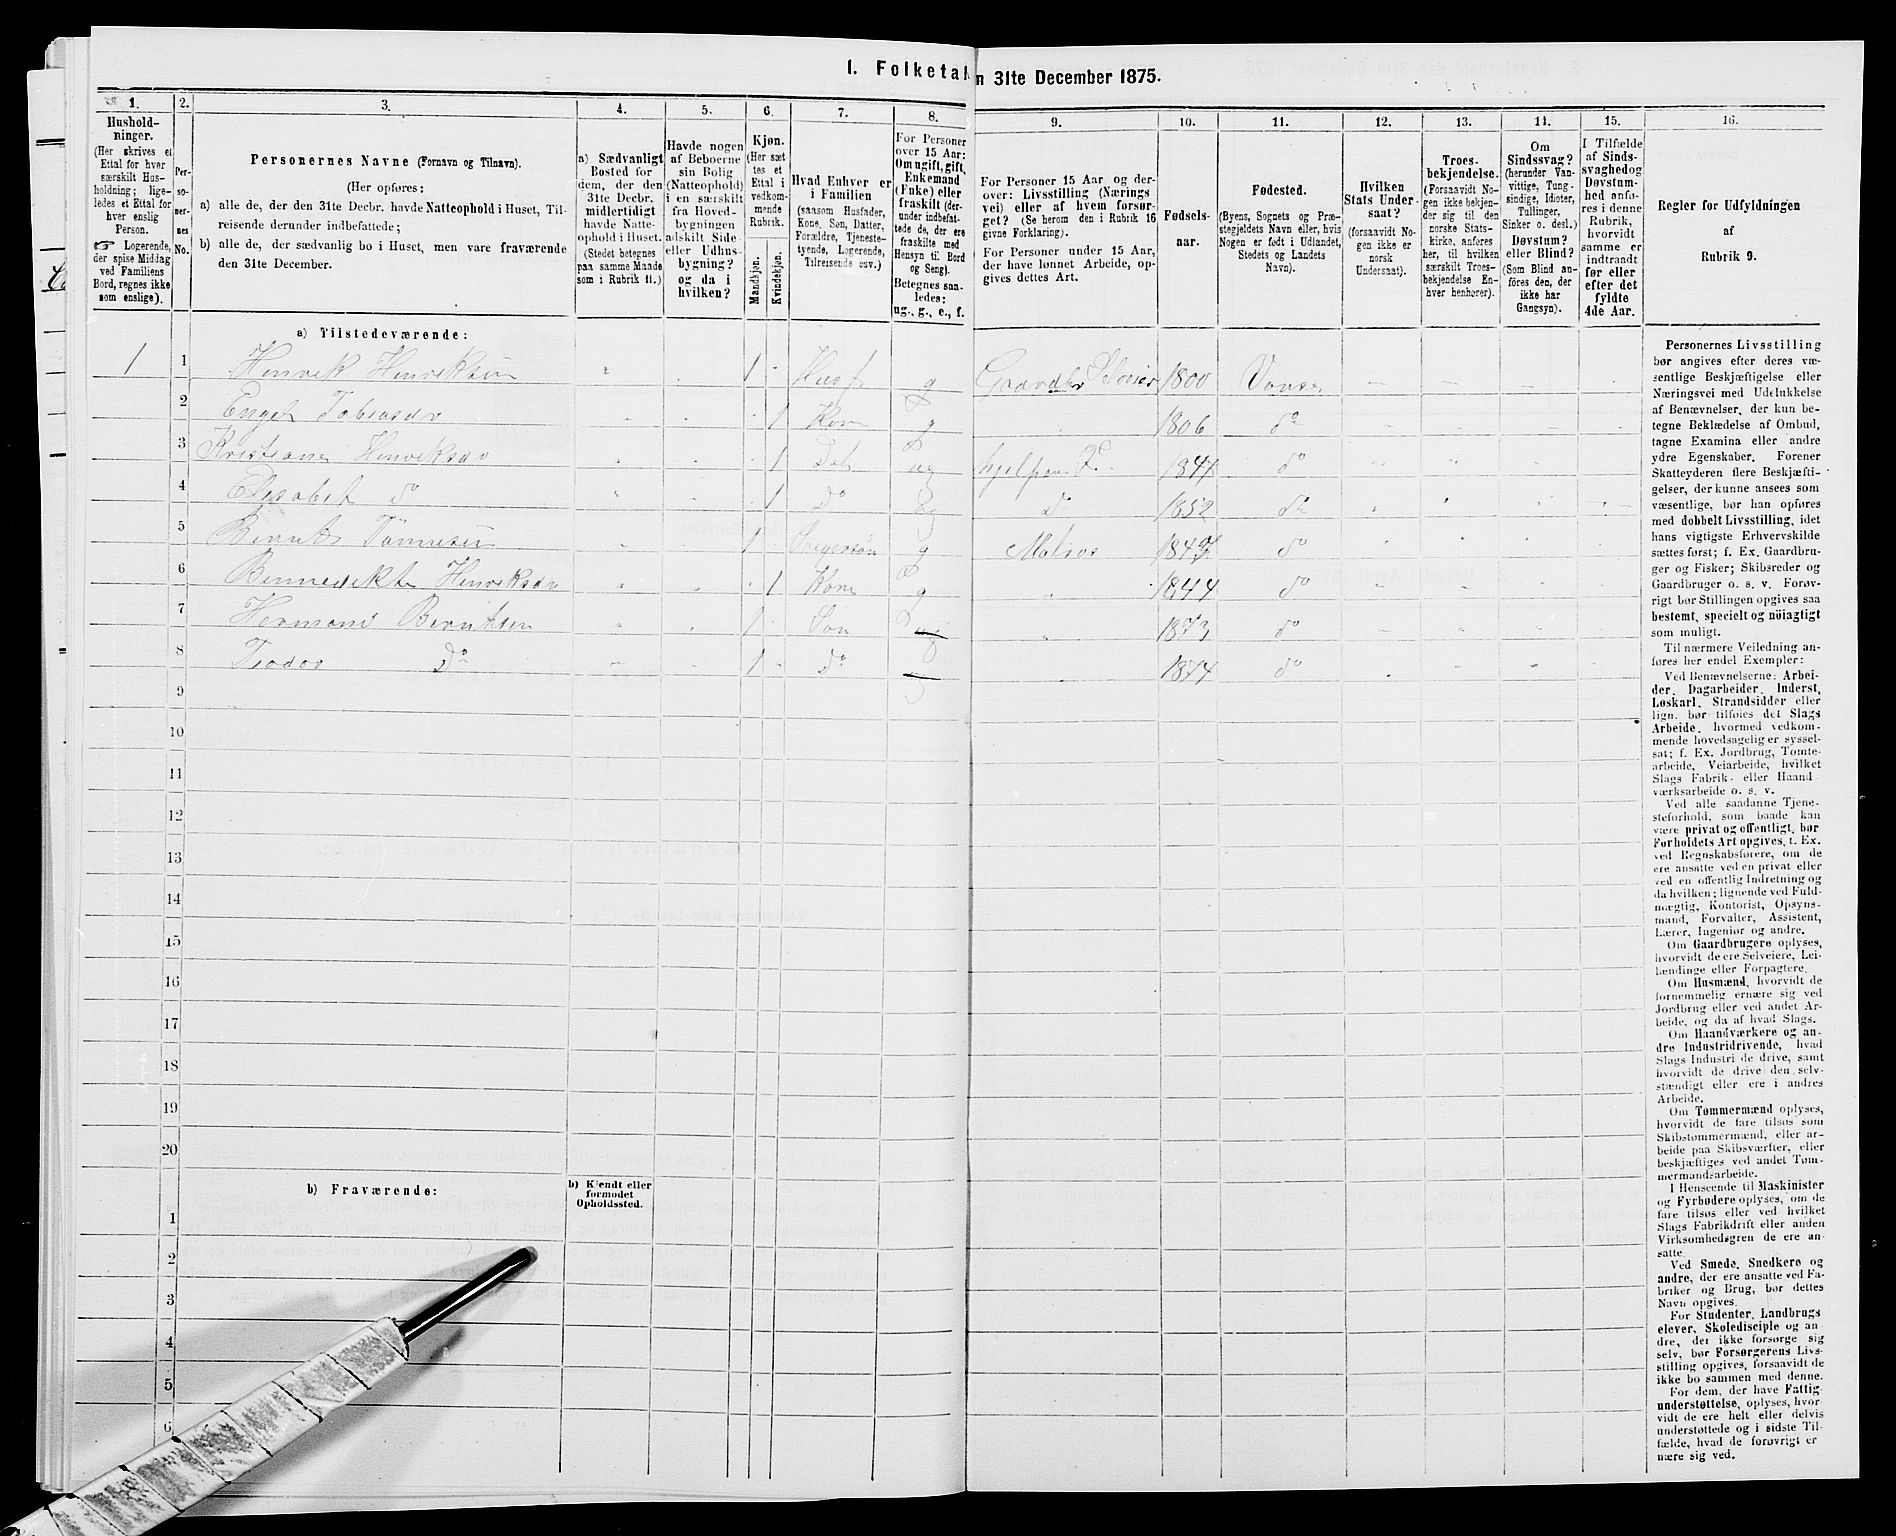 I. Folketal
n 31te December 1875.
1.
Hushold-
ninger.
(Her skrives et
Ettal for hver
særskilt Hus-
holdning; lige-
ledes et Ettal for
hver enslig
Person.
☞ Logerende,
der spise Middag
ved Familiens
Bord, regnes ikke
som enslige).
2.
Per-
so-
ner-
nes
No.
3.
Personernes Navne (Fornavn og Tilnavn).
(Her opføres:
a) alle de, der den 31te Decbr. havde Natteophold i Huset, Til-
reisende derunder indbefattede;
b) alle de, der sædvanlig bo i Huset, men vare fraværende
den 31te December.
4.
a) Sædvanligt
Bosted for
dem, der den
31te Decbr.
midlertidigt
havde Natte-
ophold i Huset.
(Stedet betegnes
paa samme Maade
som i Rubrik 11.)
5.
Havde nogen
af Beboerne
sin Bolig
(Natteophold)
i en særskilt
fra Hoved-
bygningen
adskilt Side-
eller Udhus-
bygning?
og da i
hvilken?
6.
Kjøn.
(Her sæt
tes et
Ettal i
vedkom-
mende
Rubrik.
Mandkjøn.
Kvindekjøn.
7.
Hvad Enhver er
i Familien
(saasom Husfader,
Kone, Søn, Datter,
Forældre, Tjeneste-
tyende, Logerende,
Tilreisende osv.)
8.
For Personer
over 15 Aar:
Om ugift, gift,
Enkemand
(Enke) eller
fraskilt (der-
under indbefat-
tede de, der ere
fraskilte med
Hensyn til Bord
og Seng).
Betegnes saa-
ledes:
ug., g., e., f.
9.
For Personer 15 Aar og der-
over: Livsstilling (Nærings
vei) eller af hvem forsør-
get? (Se herom den i Rubrik 16
givne Forklaring).
For Personer under 15 Aar,
der have lønnet Arbeide, op-
gives dettes Art.
10.
Fødsels-
aar.
11.
Fødested.
(Byens, Sognets og Præ-
stegjeldets Navn eller, hvis
Nogen er født i Udlandet,
Stedets og Landets
Navn).
12.
Hvilken
Stats Under-
saat?
(forsaavidt No-
gen ikke er
norsk
Undersaat).
13.
Troes-
bekjendelse.
(Forsaavidt No-
gen ikke bekjen-
der sig til den
norske Stats-
kirke, anføres
her, til hvilken
særskilt Troes-
bekjendelse En-
hver henhører).
14.
Om
Sindssvag?
(herunder Van-
vittige, Tung-
sindige, Idioter,
Tullinger,
Sinker o. desl.)
Døvstum?
eller Blind?
(Som Blind an-
føres den, der
ikke har
Gangsyn).
15.
I Tilfælde
af Sinds-
svaghed og
Døvstum-
hed anfø-
res i denne
Rubrik,
hvorvidt
samme er
indtraadt
før eller
efter det
fyldte
4de Aar.
16.
Regler for Udfyldningen
af
Rubrik 9.
a) Tilstedeværende:
1 1 Henrik Henriksen 1 Husf g Gaardbr 1800 Vanse
2 Engel Tobiasdr 1 Kone g 1806 do
3 Kristiane Henriksdr 1 Dat ug hjelper 1847 do
4 Elisabet do 1 Do ug D 1852 do
5 Bernts Tönnesen 1 Svigersøn g Matros 1847 do
6 Bennedikte Henriksdr 1 Kone g 1844 do
7 Hermand Berntsen 1 Søn ug 1873 do
8 Teodor Do 1 Do 1874 do
9
10
11
12
13
14
15
16
17
18
19
20
b) Fraværende:
b) Kjendt eller
formodet
Opholdssted.
1
2
3
4
5
6
Personernes Livsstilling
bør angives efter deres væ-
sentlige Beskjæftigelse eller
Næringsvei med Udelukkelse
af Benævnelser, der kun be-
tegne Beklædelse af Ombud,
tagne Examina eller andre
ydre Egenskaber. Forener
Skatteyderen flere Beskjæfti-
gelser, der kunne ansees som
væsentlige, bør han opføres
med dobbelt Livsstilling, idet
hans vigtigste Erhvervskilde
sættes først; f. Ex. Gaardbru-
ger og Fisker; Skibsreder og
Gaardbruger o. s. v. Forøv-
rigt bør Stillingen opgives saa
bestemt, specielt og nöiagtigt
som muligt.
Til nærmere Veiledning an-
føres her endel Exempler:
Ved Benævnelserne: Arbei-
der, Dagarbeider, Inderst,
Løskarl, Strandsidder eller
lign. bør tilføies det Slags
Arbeide, hvormed vedkom-
mende hovedsagelig er syssel-
sat; f. Ex. Jordbrug, Tomte-
arbeide, Veiarbeide, hvilket
Slags Fabrik- eller Haand-
værksarbeide o. s. v.
Ved alle saadanne Tjene-
steforhold, som baade kan
være privat og offentligt, bør
Forholdets Art opgives, t. Ex.
ved Regnskabsførere, om de
ere ansatte ved en privat eller
ved en offentlig Indretning og
da hvilken; lignende ved Fuld-
mægtig, Kontorist, Opsyns-
mand, Forvalter, Assistent,
Lærer, Ingeniør og andre.
Om Gaardbrugere oplyses,
hvorvidt de ere Selveiere, Lei-
lændinge eller Forpagtere.
Om Husmænd, hvorvidt de
fornemmelig ernære sig ved
Jordbrug eller ved andet Ar-
beide, og da af hvad Slags.
Om Haandværkere og an-
dre Industridrivende, hvad
Slags Industri de drive, samt
hvorvidt de drive den selv-
stændigt eller ere i andres
Arbeide.
Om Tømmermænd oplyses,
hvorvidt de fare tilsøs som
Skibstømmermænd, eller ar-
beide paa Skibsværfter, eller
beskjæftiges ved andet Tøm-
mermandsarbeide.
I Henseende til Maskinister
og Fyrbødere oplyses, om de
fare tilsøs eller ved hvilket
Slags Fabrikdrift eller anden
Virksomhedsgren de ere an-
satte.
Ved Smede, Snedkere og
andre, der ere ansatte ved Fa-
briker og Brug, bør dettes
Navn opgives.
For Studenter, Landbrugs
elever, Skoledisciple og an-
dre, der ikke forsørge sig
selv, bør Forsørgerens Livs-
stilling opgives, forsaavidt de
ikke bo sammen med denne.
For dem, der have Fattig-
understøttelse, oplyses, hvor-
vidt de ere helt eller delvis
understøttede og i sidste Til-
fælde, hvad de forøvrigt er
nære sig ved.